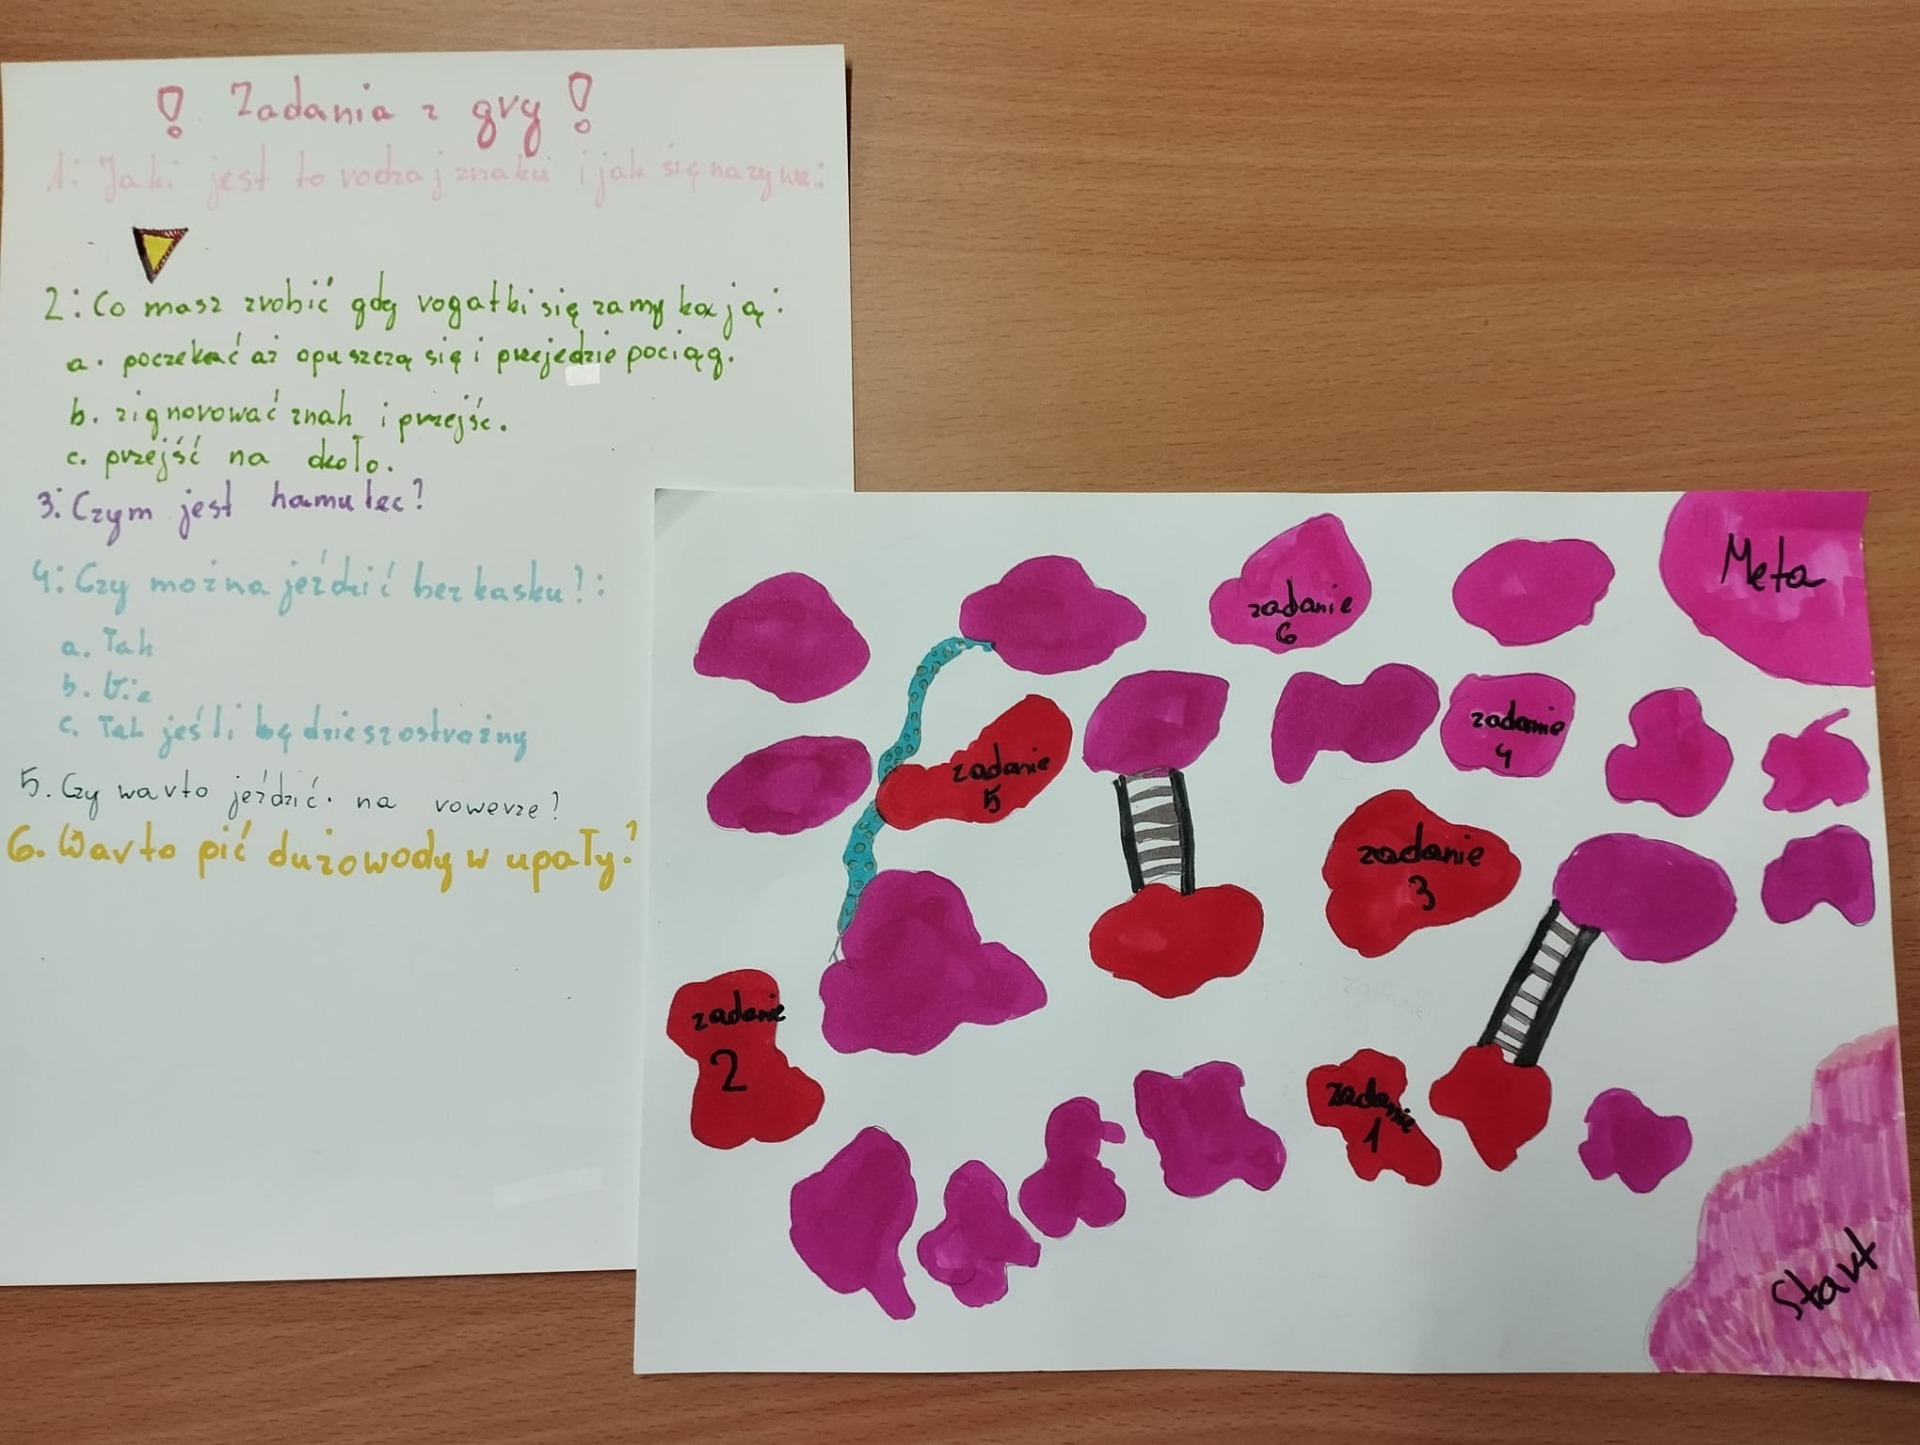 ! Zadania z gry !
1: Jaki jest to rodzaj znaku i jak się nazywa:
2: Co masz zrobić gdy rogatki się zamykają:
a. poczekać aż opuszczą się i przejedzie pociąg.
b. zignorować znak i przejść.
c. przejść na około.
3: Czym jest hamulec?
4: Czy można jeździć bez kasku?:
a. Tak
b. Nie
c. Tak jeśli będziesz ostrożny
5. Czy warto jeździć. na rowerze?
6. Warto pić dużo wody w upały?
Meta
zadanie
6
zadanie
4
zadanie
5
zadanie
3
zadanie
2
zadanie
1
Start